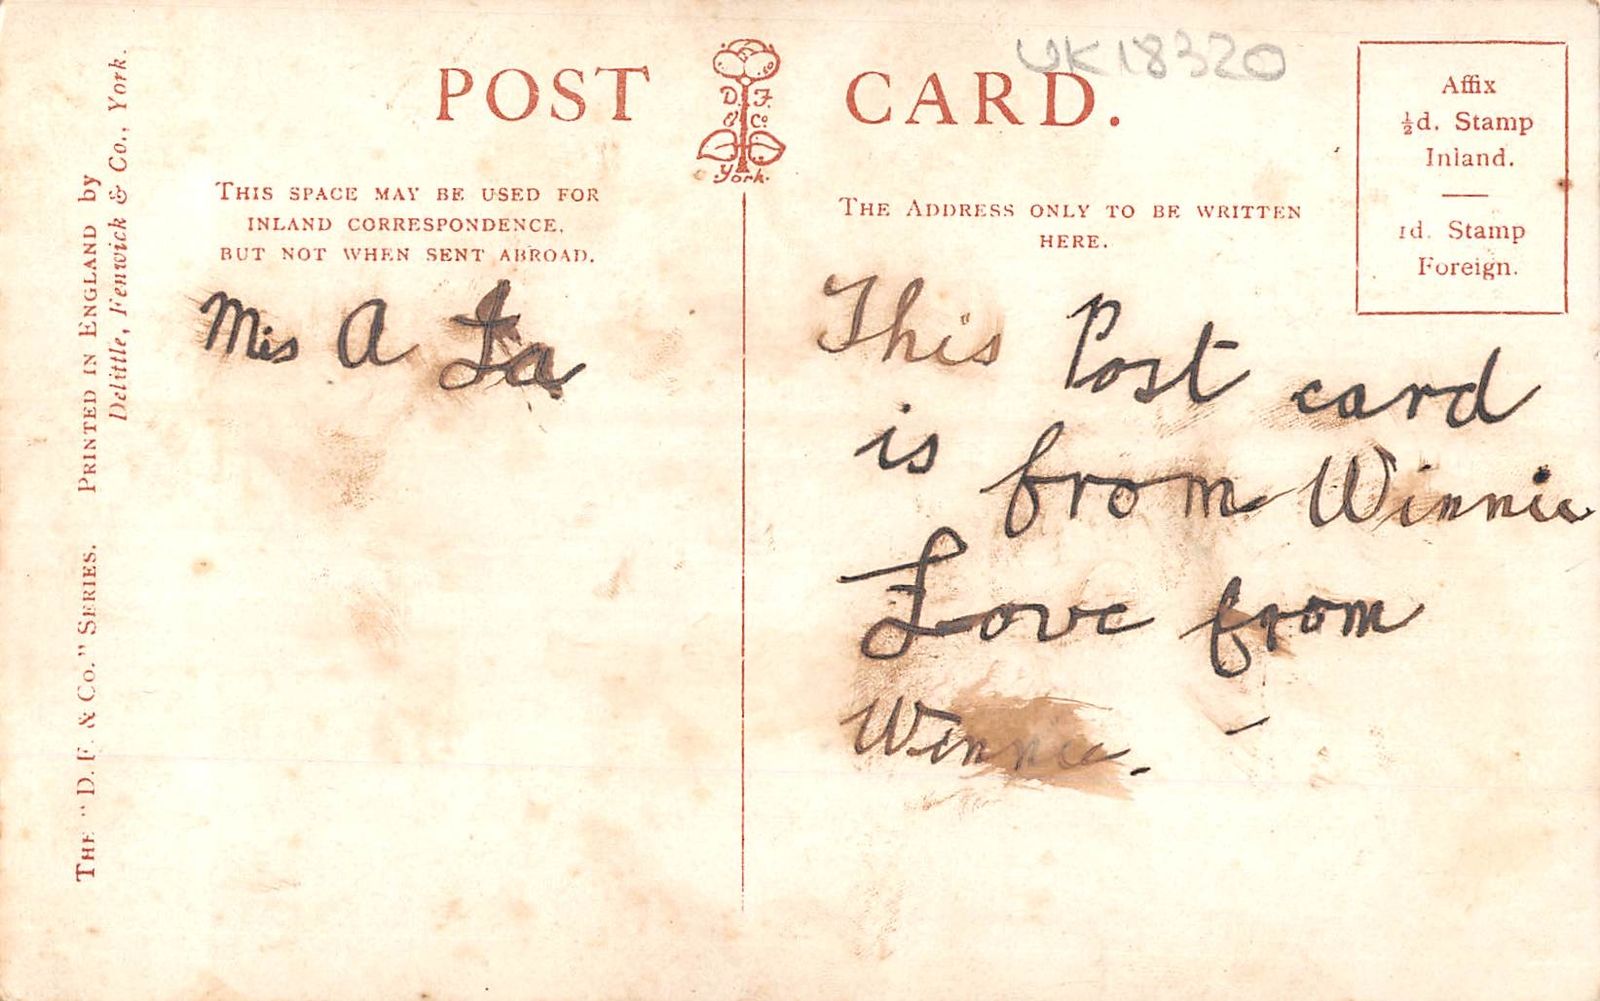 UK18320
POST CARD.
D. F.
& Co.
York.
Affix
½d. Stamp
Inland.
1d. Stamp
Foreign.
THIS SPACE MAY BE USED FOR
INLAND CORRESPONDENCE,
BUT NOT WHEN SENT ABROAD.
THE ADDRESS ONLY TO BE WRITTEN
HERE.
Mis A
This Post card
is from Winnie
Love from
Winnie.
THE "D. F. & Co." SERIES. PRINTED IN ENGLAND by
Delittle, Fenwick & Co., York.